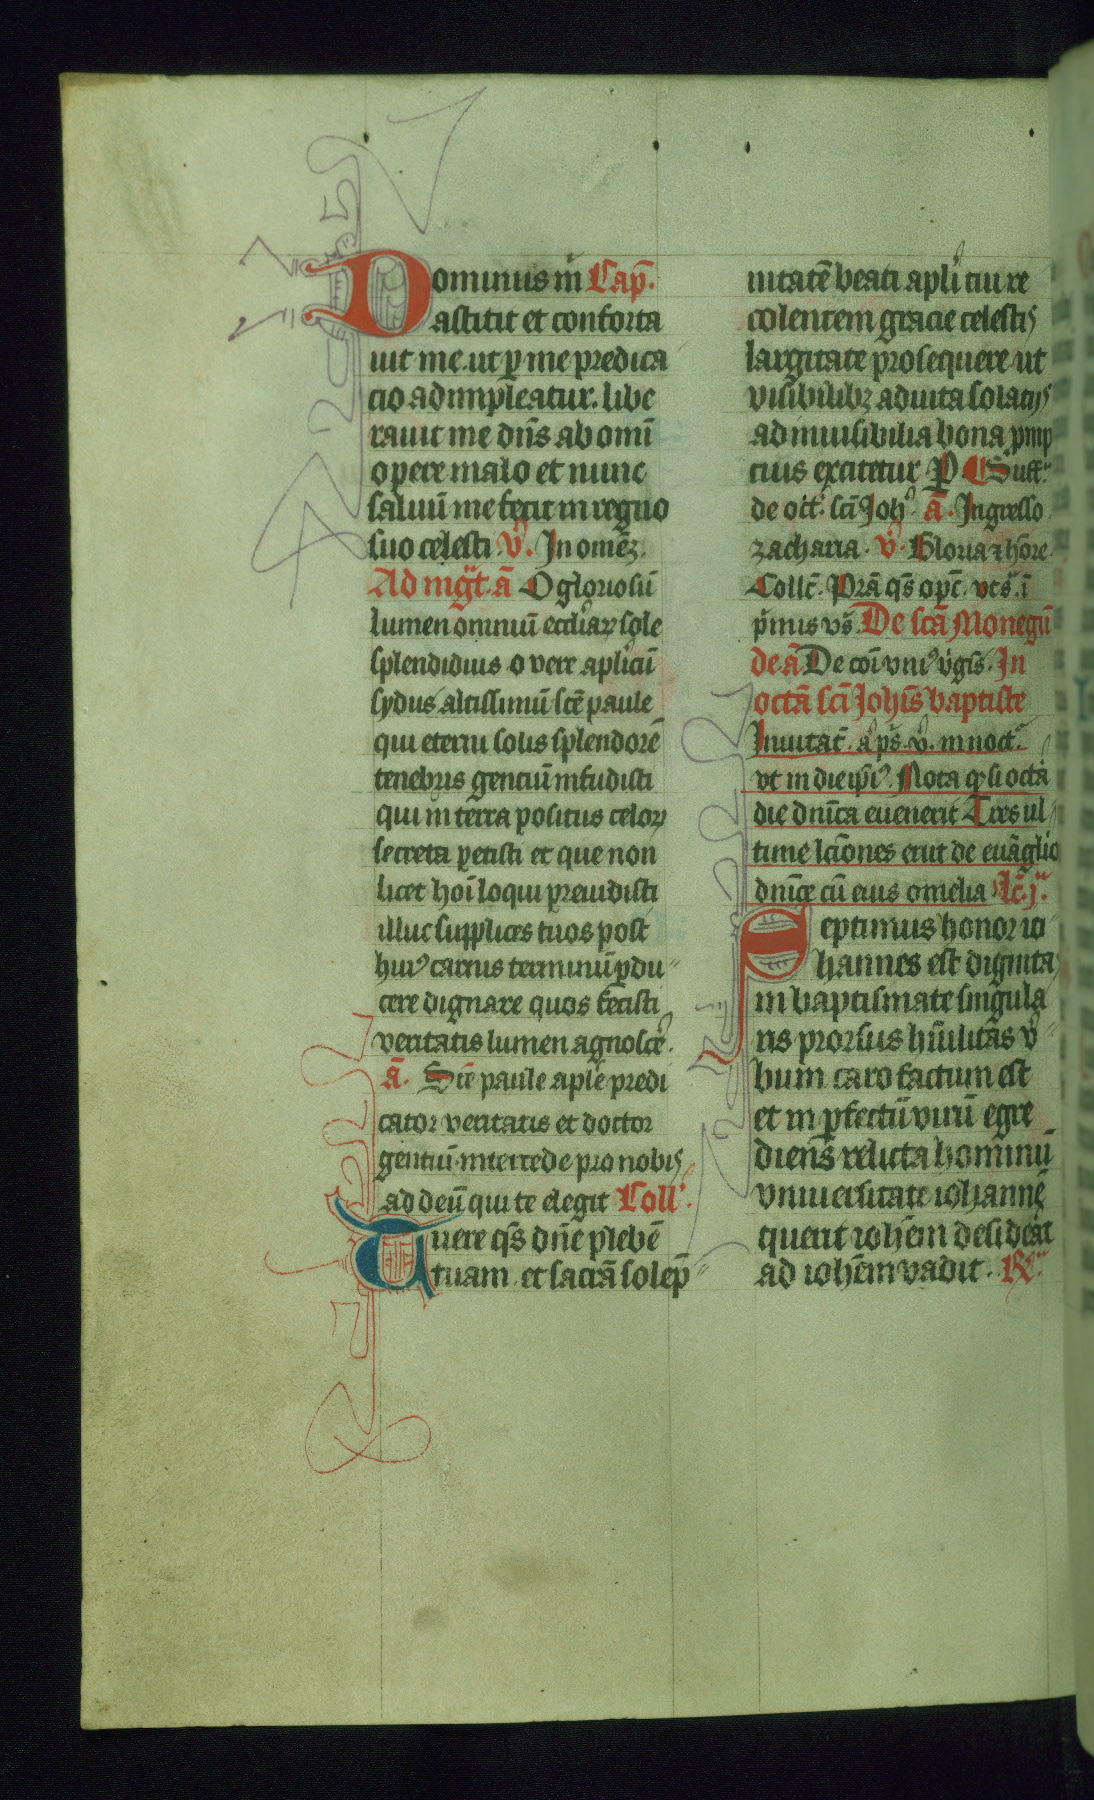 Dominus m̄ Cap̄.
astitit et conforta
uit me. ut ꝑ me predica
cio adimpleatur. libe
rauit me dn̄s ab om̄i
opere malo et nunc
saluū me fecit in regno
suo celesti. v̉. In omēꝫ.
Ad mḡt. ā O gloriosū
lumen omniū ecc̄liaꝝ sole
splendidius o vere apl̓icū
sydus altissimū sc̄e paule
qui eterni solis splendorē
tenebris gentiū infudisti
qui in terra positus celoꝝ
secreta petisti et que non
licet hoī loqui preuidisti
illuc supplices tuos post
huiꝰ carnis terminū ꝑdu
cere dignare quos fecisti
veritatis lumen agnoscē.
ā. Sc̄e paule apl̄e predi
cator veritatis et doctor
gentiū intercede pro nobis
ad deū qui te elegit Coll̓.
Tuere qs̄ dn̄e plebē
tuam. et sacrā solep̄
nitatē beati apl̓i tui re
colentem gracie celestis
largitate prosequere ut
visibilibꝫ adiuta solatijs
ad inuisibilia bona pmp
cius excitetur P̄ Suff̓.
de oct̓. sc̄i Joh̓ ā. Ingresso
zacharia. v̉. Gloria ⁊ hore
Collc̄. Prā qs̄ opc̄. vts̓. ī
p̓mis vs̄. De sc̄ā Monegū
de ā De coī vniꝰ v̓gis̄. In
octā sc̄i Joh̄is baptiste
Inuitat̄. a̓ ps̄. v̓. in noct̓.
vt in die ip̄iꝰ. Nota qꝫ si octā
die dn̄ica euenerit Tres ul
time lc̄iones erūt de euāglio
dn̄ice cū eius omelia. Lc̄. j.
Septimus honor io
hannes est dignita
in baptismate singula
ris prorsus hūilitas v̓
bum caro factum est
et in ꝑfectū virū egre
diens relicta hominū
vniuersitate iohannē
querit ioh̄em desiderat
ad ioh̄em vadit. ℟.